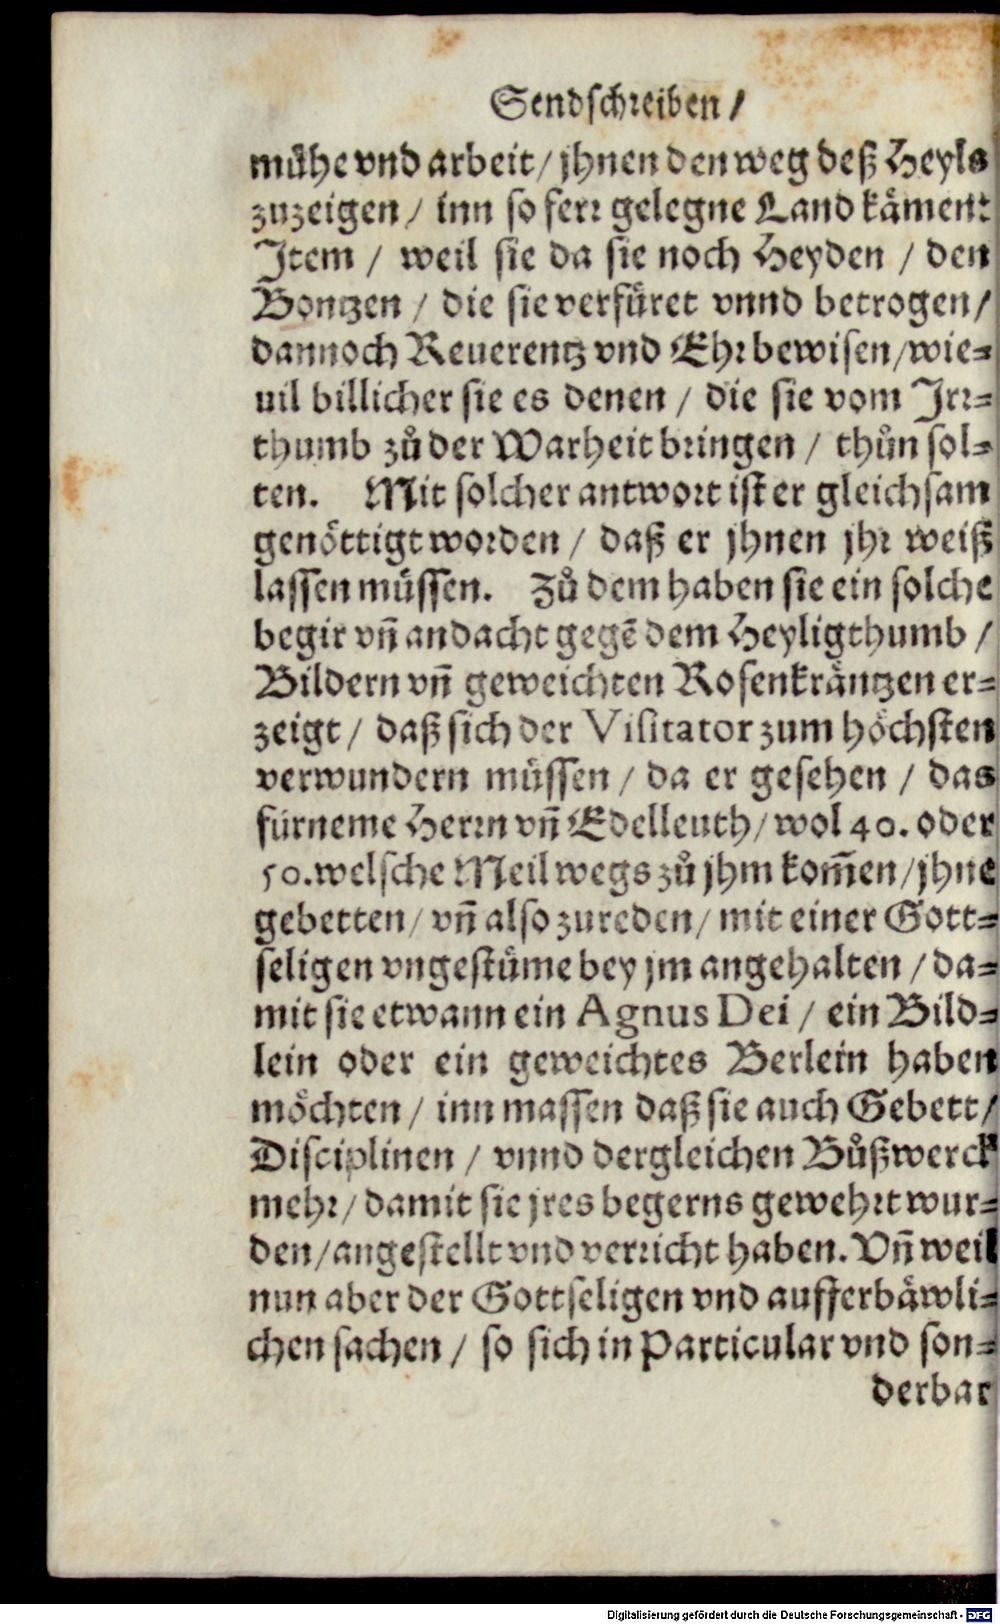 Sendschreiben /
mühe vnd arbeit / jhnen den weg deß Heyls
zuzeigen / inn so ferr gelegne Land kämen:
Item / weil sie da sie noch Heyden / den
Bontzen / die sie verfüret vnnd betrogen /
dannoch Reuerentz vnd Ehr bewisen / wie⸗
uil billicher sie es denen / die sie vom Irr⸗
thumb zů der Warheit bringen / thůn sol⸗
ten. Mit solcher antwort ist er gleichsam
genöttigt worden / daß er jhnen jhr weiß
lassen müssen. Zů dem haben sie ein solche
begir vñ andacht gegẽ dem Heyligthumb /
Bildern vñ geweichten Rosenkräntzen er⸗
zeigt / daß sich der Visitator zum höchsten
verwundern müssen / da er gesehen / das
fürneme Herrn vñ Edelleuth / wol 40. oder
50. welsche Meil wegs zů jhm kom̃en / jhne
gebetten / vñ also zureden / mit einer Gott⸗
seligen vngestüme bey jm angehalten / da⸗
mit sie etwann ein Agnus Dei / ein Bild⸗
lein oder ein geweichtes Berlein haben
möchten / inn massen daß sie auch Gebett /
Disciplinen / vnnd dergleichen Bůßwerck
mehr / damit sie jres begerns gewehrt wur⸗
den / angestellt vnd verricht haben. Vñ weil
nun aber der Gottseligen vnd aufferbäwli⸗
chen sachen / so sich in Particular vnd son⸗
derbar
Digitalisierung gefördert durch die Deutsche Forschungsgemeinschaft - DFG